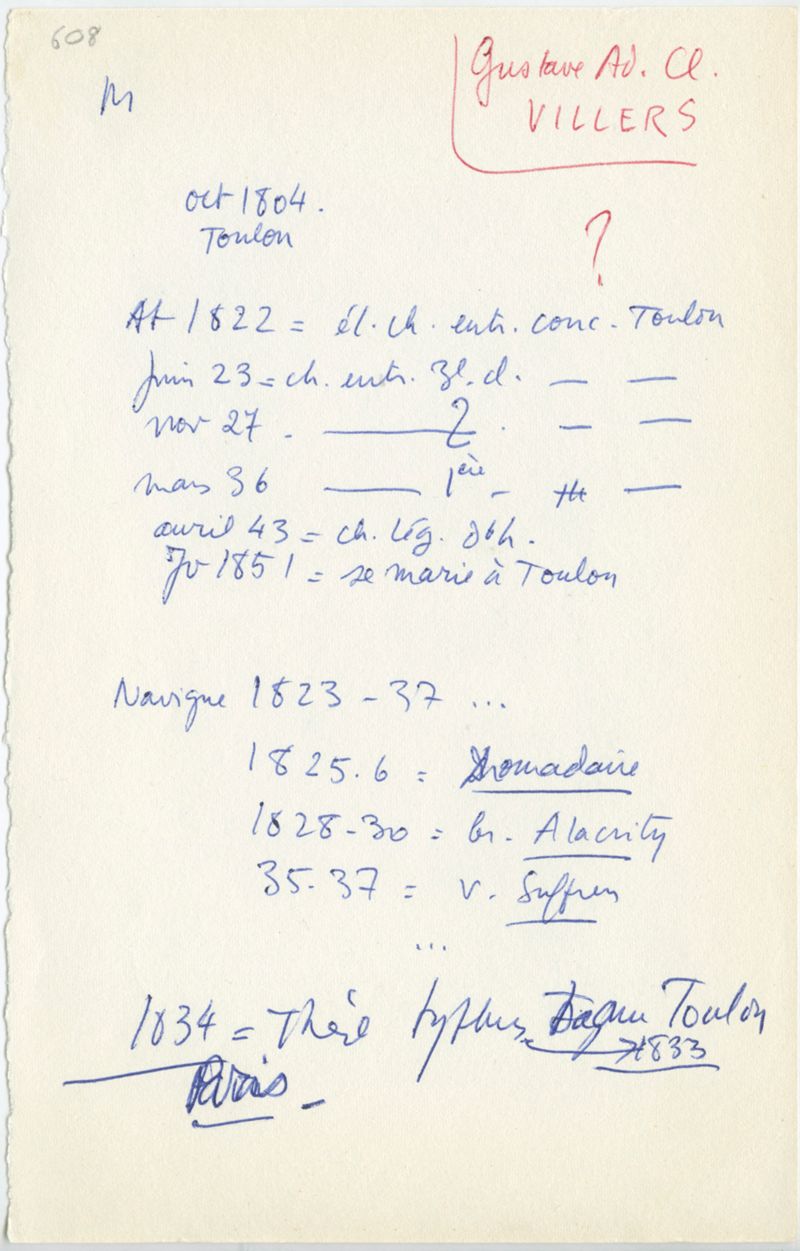 608
M
Gustave Ad. Cl.
VILLERS
oct 1804.
Toulon
?
At 1822 = él. ch. entr. conc. Toulon
Juin 23 = ch. entr. 3e. cl. — —
nov 27 . — 2 . — —
mars 36 — 1ère — —
avril 43 = ch. lég. d'h.
Jv 1851 = se marie à Toulon
Navigue 1823 - 37 ...
1825.6 = Dromadaire
1828-30 = br. Alacrity
35.37 = v. Suffren
...
1834 = Thèse typhus Bagne Toulon
1833
Paris -